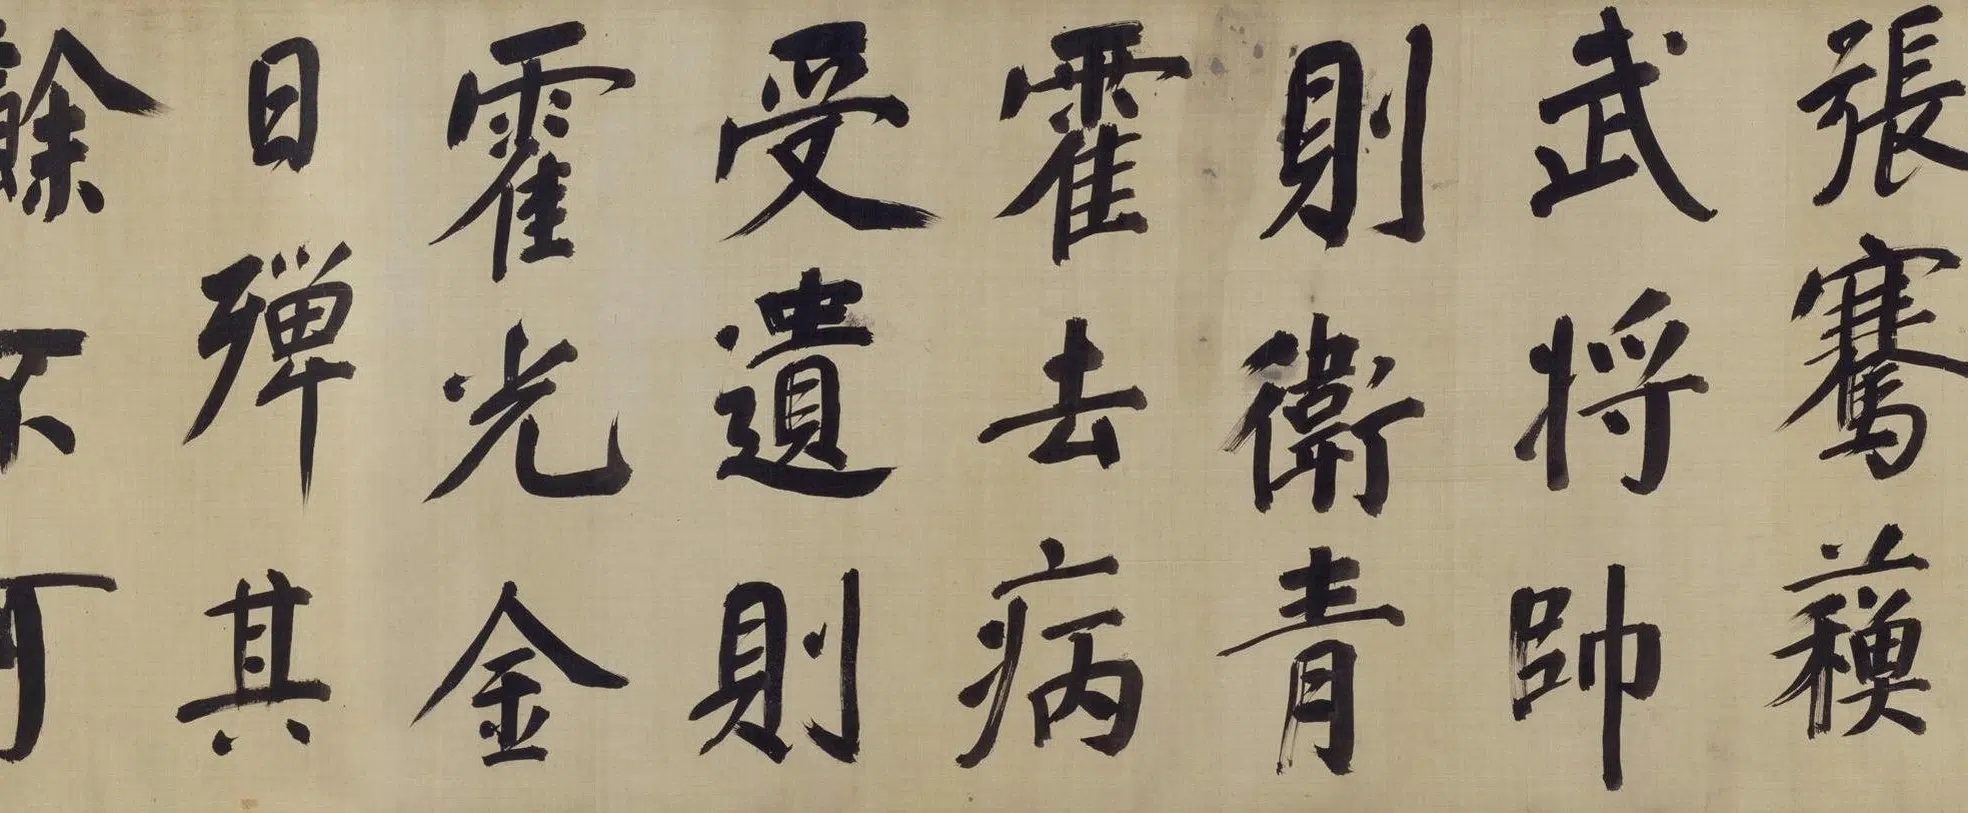 張騫蘓
武将帥
則衛青
霍去病
受遺則
霍光金
日磾其
餘不可